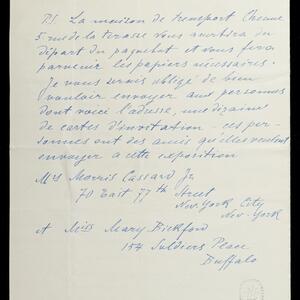 P.S La maison de transport Chenue
5 rue de la terrasse vous avertira du
départ du paquebot et vous fera
parvenir les papiers nécessaires.
Je vous serais obligé de bien
vouloir envoyer aux personnes
dont voici l'adresse, une dizaine
de cartes d'invitation - ces per-
sonnes ont des amis qu'elles veulent
envoyer à cette exposition
Mrs Morris Cassard Jr.
70 East 77th Street
New-York City
New-York
et Miss Mary Bickford
154 Soldiers Place
Buffalo